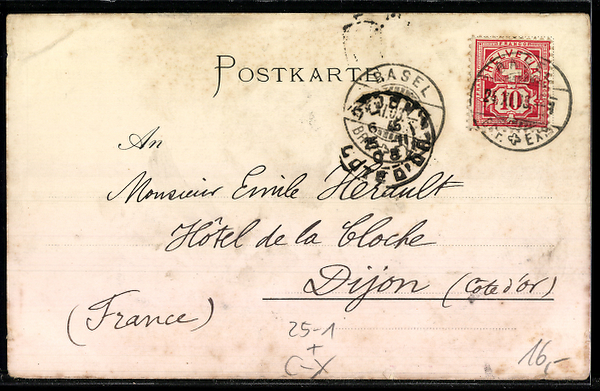 POSTKARTE
FRANCO
HELVETIA
10
BASEL
COTE D'OR
EXP.
An
Monsieur Emile Hérault
Hôtel de la Cloche
Dijon (Côte d'or)
(France)
25-1
+
C-X
16,-